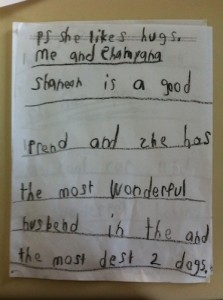 ps she likes hugs.
me and Chamyana
Shaneah is a good
frend and she has
the most wonderful
husbend in the and
the most dest 2 dogs.